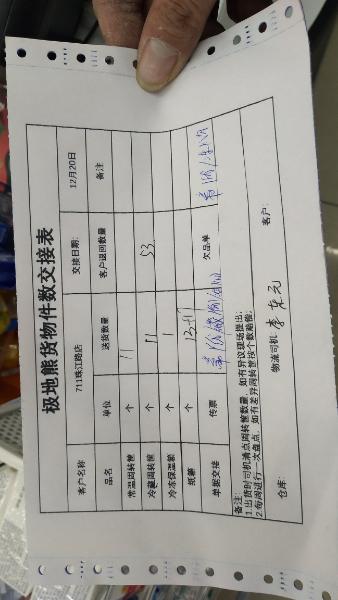 极地熊货物件数交接表
客户名称 711珠江路店 交接日期: 12月20日
品名 单位 送货数量 客户退回数量 备注
常温周转筐 个 11
冷藏周转筐 个 11 53
冷冻保温箱 个
纸箱 个
单据交接 传票 欠品单
备注:
1.出货时司机清点周转筐数量,如有异议现场提出;
2.每周进行一次盘点,如有差异周转筐按个数赔偿;
仓库: 物流司机: 客户: